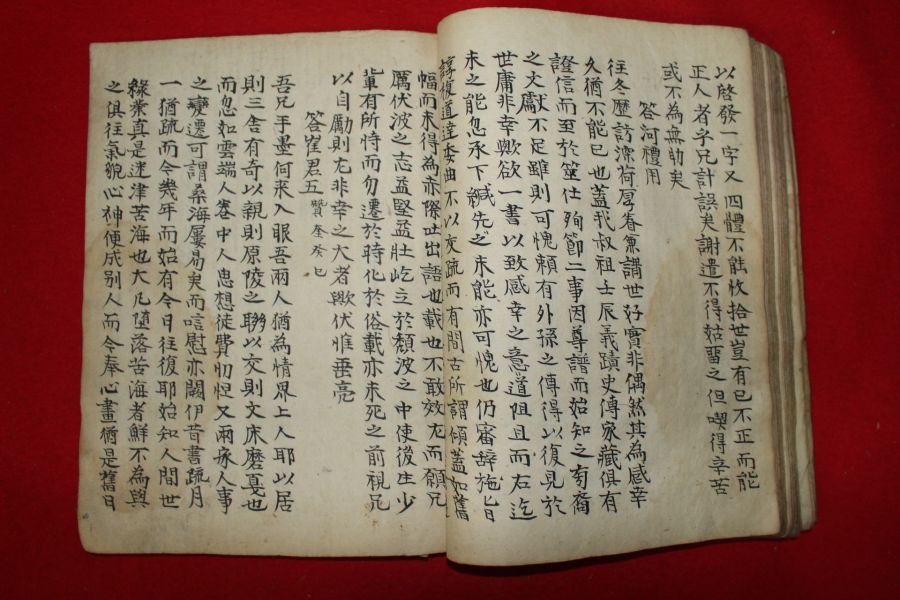 以啓發一字又四體不能收拾世豈有己不正而能
正人者乎兄計誤矣謝遣不得姑留之但喫得辛苦
或不為無助矣
答河禮用
往冬歷訪深荷厚眷兼講世好實非偶然其為感幸
久猶不能已也蓋我叔祖壬辰義蹟史傳家藏俱有
證信而至於筮仕殉節二事因尊譜而始知之旁裔
之文獻不足雖則可愧賴有外孫之傳得以復見於
世庸非幸歟欲一書以致感幸之意道阻且而右迄
未之能忽承下緘先之未能亦可愧也仍審辞施旨
諄復道達委曲不以交疏而有間古所謂傾蓋如舊
幅而未得為赤際吐出語也載也不敢效尤而願兄
厲伏波之志益堅益壯屹立於頹波之中使後生少
輩有所恃而勿遷於時化於俗載亦未死之前視兄
以自勵則尤非幸之大者歟伏惟垂亮
答崔君五 贊奎癸巳
吾兄手墨何來入眼吾兩人猶為情界上人耶以居
則三舍有奇以親則原陵之聯以交則文床磨戛也
而忽如雲端人峯中人思想徒費忉怛又兩家人事
之變遷可謂桑海屢易矣而唁慰亦闕伊昔書疏月
一猶疏而今幾年而始有今日往復耶始知人間世
緣業真是迷津苦海也大凡墮落苦海者鮮不為與
之俱往氣貌心神便成别人而今奉心畫猶是舊日